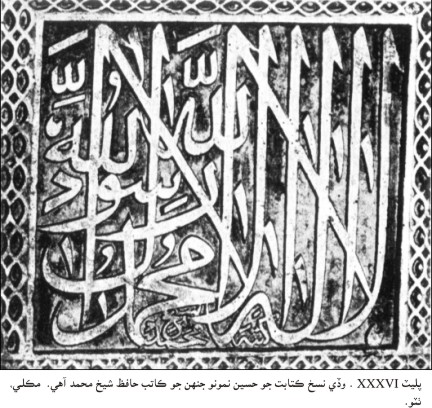 لا اله الا الله محمد رسول الله
پليٽ XXXVI . وڏي نسخ ڪتابت جو حسين نمونو جنهن جو ڪاتب حافظ شيخ محمد آهي. مڪلي.
ٺٽو.